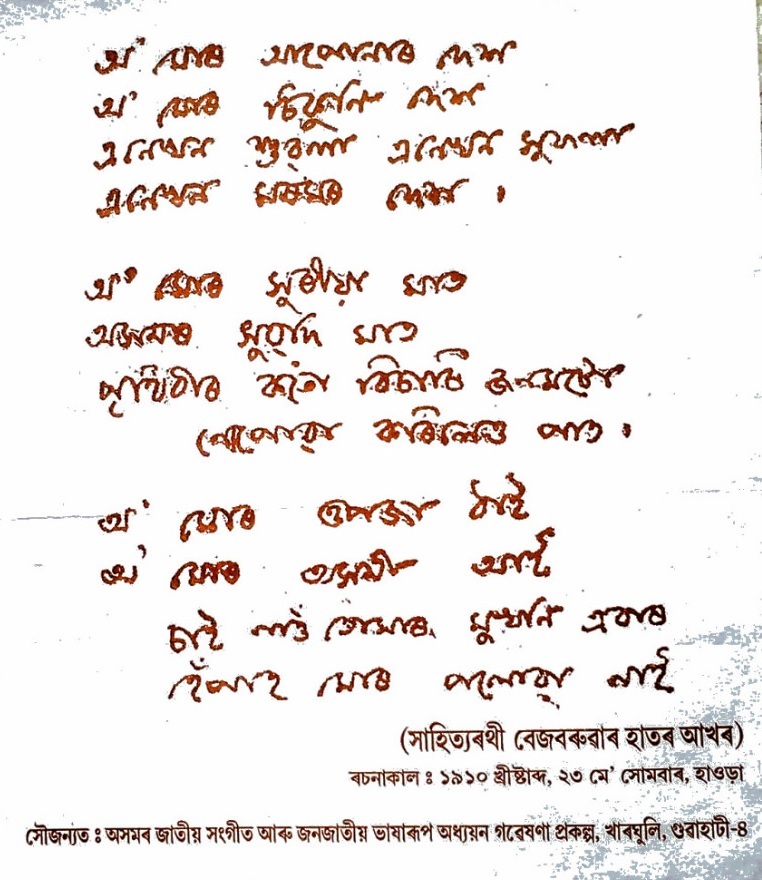 অ' মোৰ আপোনাৰ দেশ
অ' মোৰ চিকুনি দেশ
এনেখন শুৱলা এনেখন সুফলা
এনেখন মৰমৰ দেশ ।
অ' মোৰ সুৰীয়া মাত
অসমৰ সুৱদি মাত
পৃথিবীৰ ক'তো বিচাৰি জনমটো
নোপোৱা কৰিলেও পাত ।
অ' মোৰ ওপজা ঠাই
অ' মোৰ অসমী আই
চাই লওঁ তোমাৰ মুখনি এবাৰ
হেঁপাহ মোৰ পলোৱা নাই
(সাহিত্যৰথী বেজবৰুৱাৰ হাতৰ আখৰ)
ৰচনাকাল : ১৯১০ খ্ৰীষ্টাব্দ, ২৩ মে' সোমবাৰ, হাওড়া
সৌজন্যত : অসমৰ জাতীয় সংগীত আৰু জনজাতীয় ভাষাৰূপ অধ্যয়ন গৱেষণা প্ৰকল্প, খাৰঘুলি, গুৱাহাটী-৪